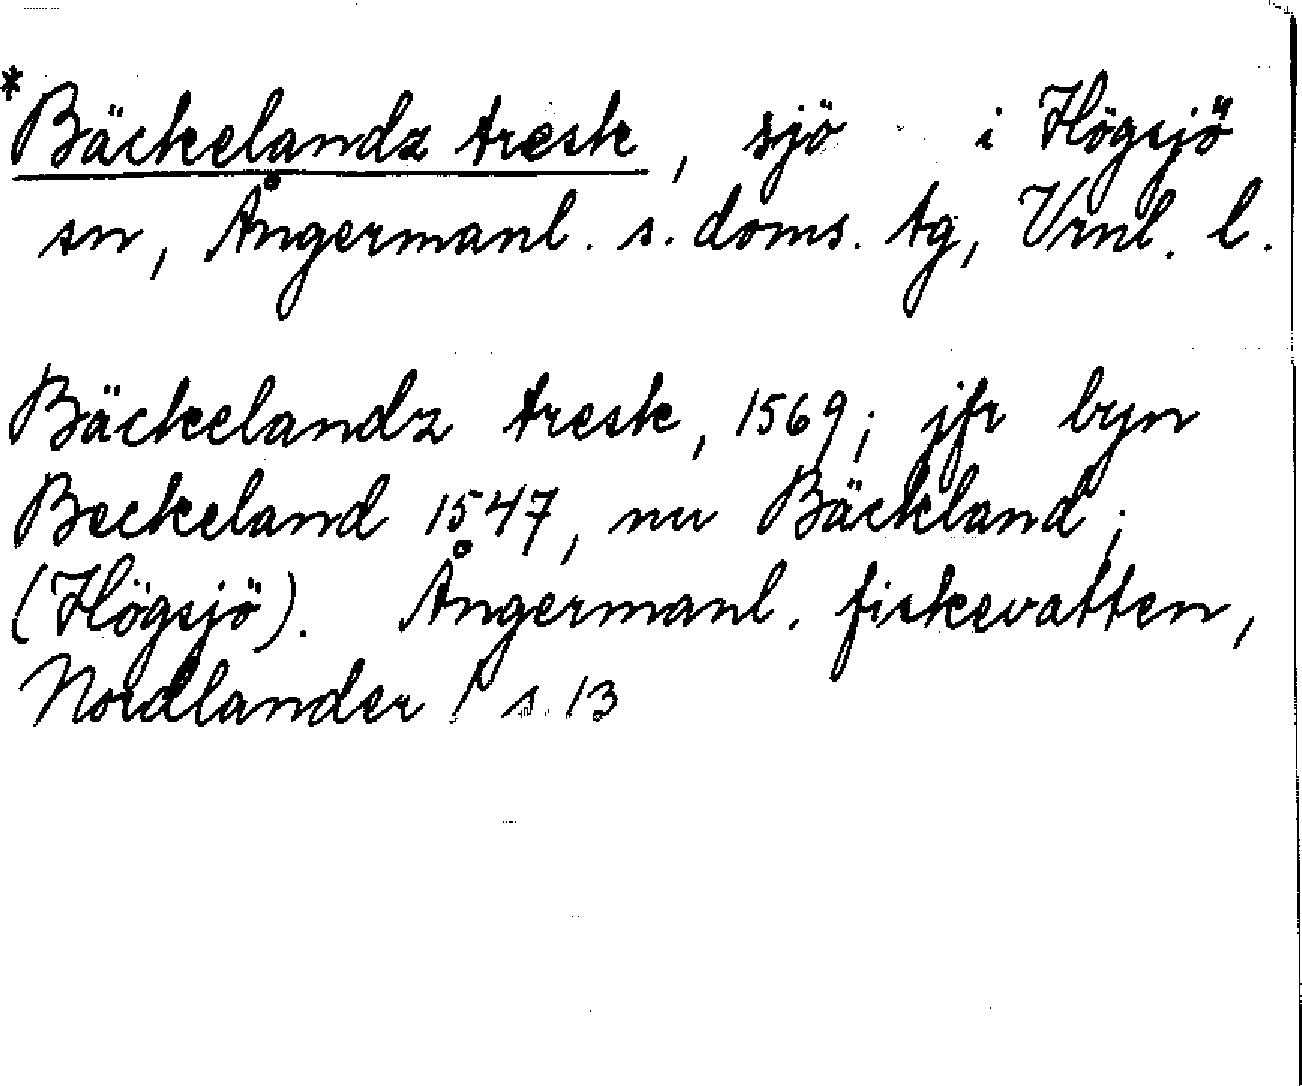 *Bäckelandz tresk, sjö i Högsjö
sn, Ångermanl. s. doms. tg, Vrnl. l.
Bäckelandz tresk, 1569; jfr byn
Beckeland 1547, nu Bäckland;
(Högsjö). Ångermanl. fiskevatten,
Nordlander / s. 13